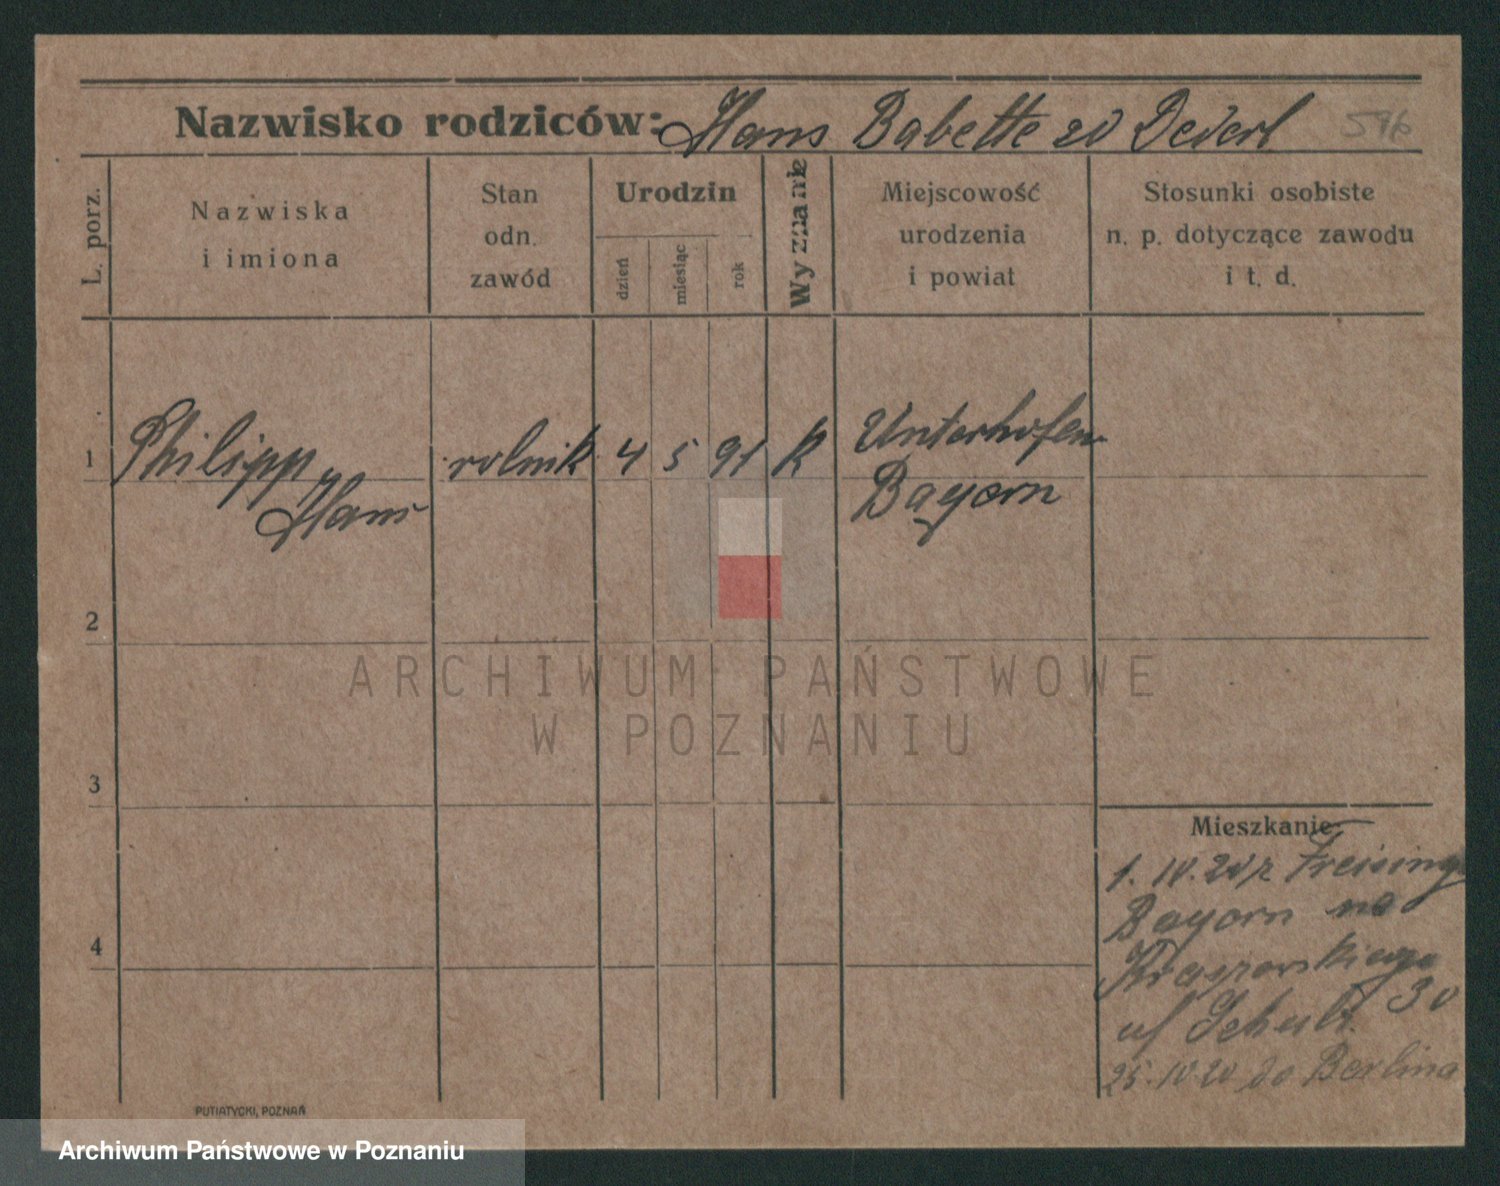 Nazwisko rodziców: Hans Babette zd Dederl 546
L. porz.
Nazwiska
i imiona
Stan
odn.
zawód
Urodzin
dzień
miesiąc
rok
Wyznanie
Miejscowość
urodzenia
i powiat
Stosunki osobiste
n. p. dotyczące zawodu
i t. d.
1 Philipp rolnik 4 5 91 K Unterhofen
Hans Bayern
2
ARCHIWUM PAŃSTWOWE
W POZNANIU
3
Mieszkanie:
1. IV. 20 z Freising
Bayern na
4
Kraszewskiego
30
u/ Schulz
25. IV. 20 do Berlina
PUTIATYCKI, POZNAŃ
Archiwum Państwowe w Poznaniu